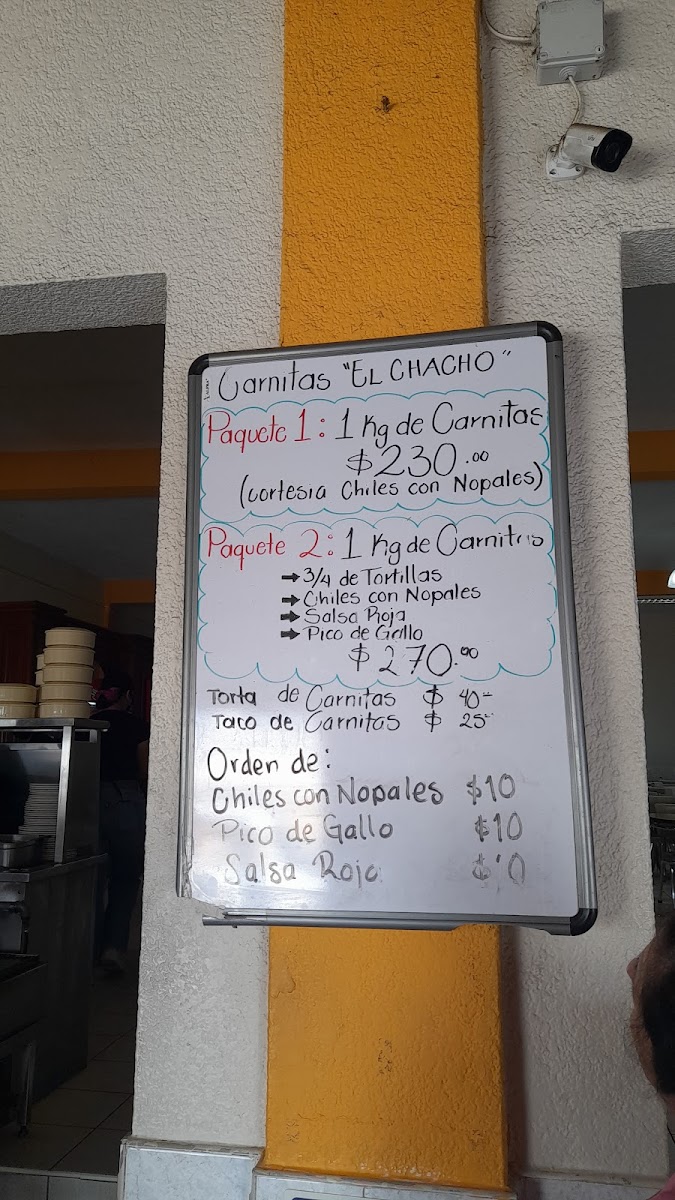 Carnitas "EL CHACHO"
Paquete 1: 1 Kg de Carnitas
$230.00
(cortesia Chiles con Nopales)
Paquete 2: 1 Kg de Carnitas
→ 3/4 de Tortillas
→ Chiles con Nopales
→ Salsa Roja
→ Pico de Gallo
$270.00
Torta de Carnitas $ 40-
Taco de Carnitas $ 25-
Orden de:
Chiles con Nopales $10
Pico de Gallo $10
Salsa Roja